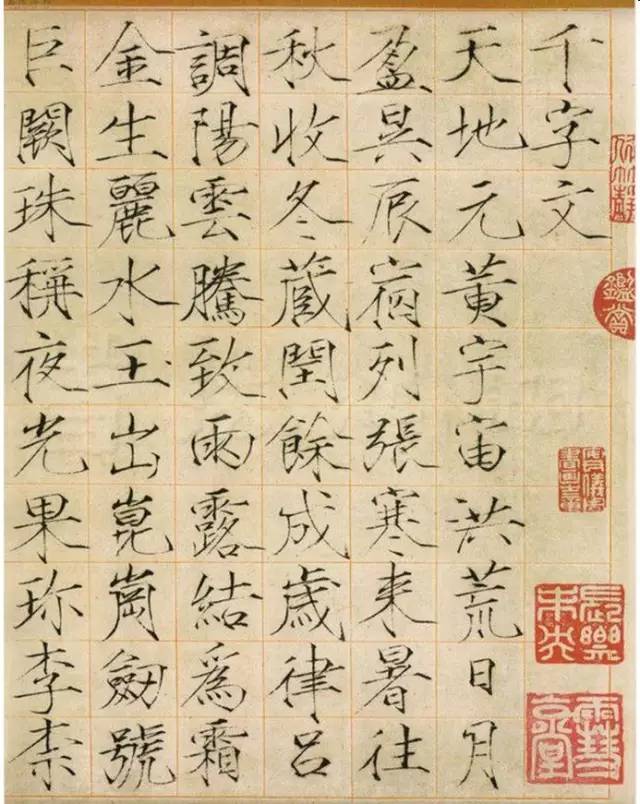 千字文
天地元黃宇宙洪荒日月
盈昃辰宿列張寒来暑往
秋收冬藏閏餘成歲律呂
調陽雲騰致雨露結爲霜
金生麗水玉出崑崗劒號
巨闕珠稱夜光果珎李柰
鑑賞